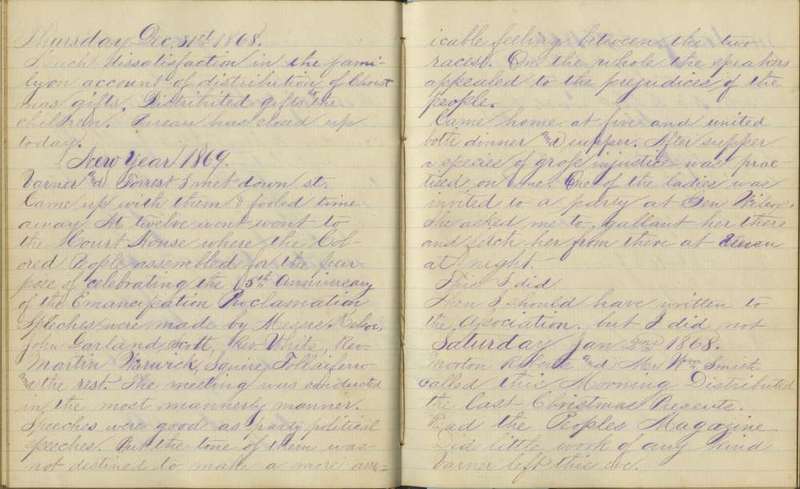 Thursday Dec. 31st 1868.
Much dissatisfaction in the fami-
ly on account of distribution of Christ
mas gifts. Distributed gifts to the
children. Bureau was closed up
today.
New Year 1869.
Varner and Forrest I met down st.
Came up with them & fooled time
away. At twelve went went to
the Court House where the Col-
ored People assembled for the pur
pose of celebrating the 5th Anniversary
of the Emancipation Proclamation
Speeches were made by
John Garland Scott, Rev White, Rev.
Martin Warwick, Squire
and the rest. The meeting was conducted
in the most mannerly manner.
Speeches were good as party political
speeches. But the tone of them was
not destined to make a more am-
icable feeling between the two
races. On the whole the speakers
appealed to the prejudices of the
people.
Came home at five and united
both dinner and supper. After supper
a species of gross injustice was prac-
tised on me. One of the ladies was
invited to a party at Gen
She asked me to gallant her there
and fetch her from there at eleven
at night.
This I did
Then I should have written to
the Asociation. but I did not
Saturday Jan 2nd 1868.
Morton and Mrs Wm Smith
called this Morning Distributed
the last Christmas Presents.
Read the Peoples Magazine
Did little work of any kind
Varner left this eve.